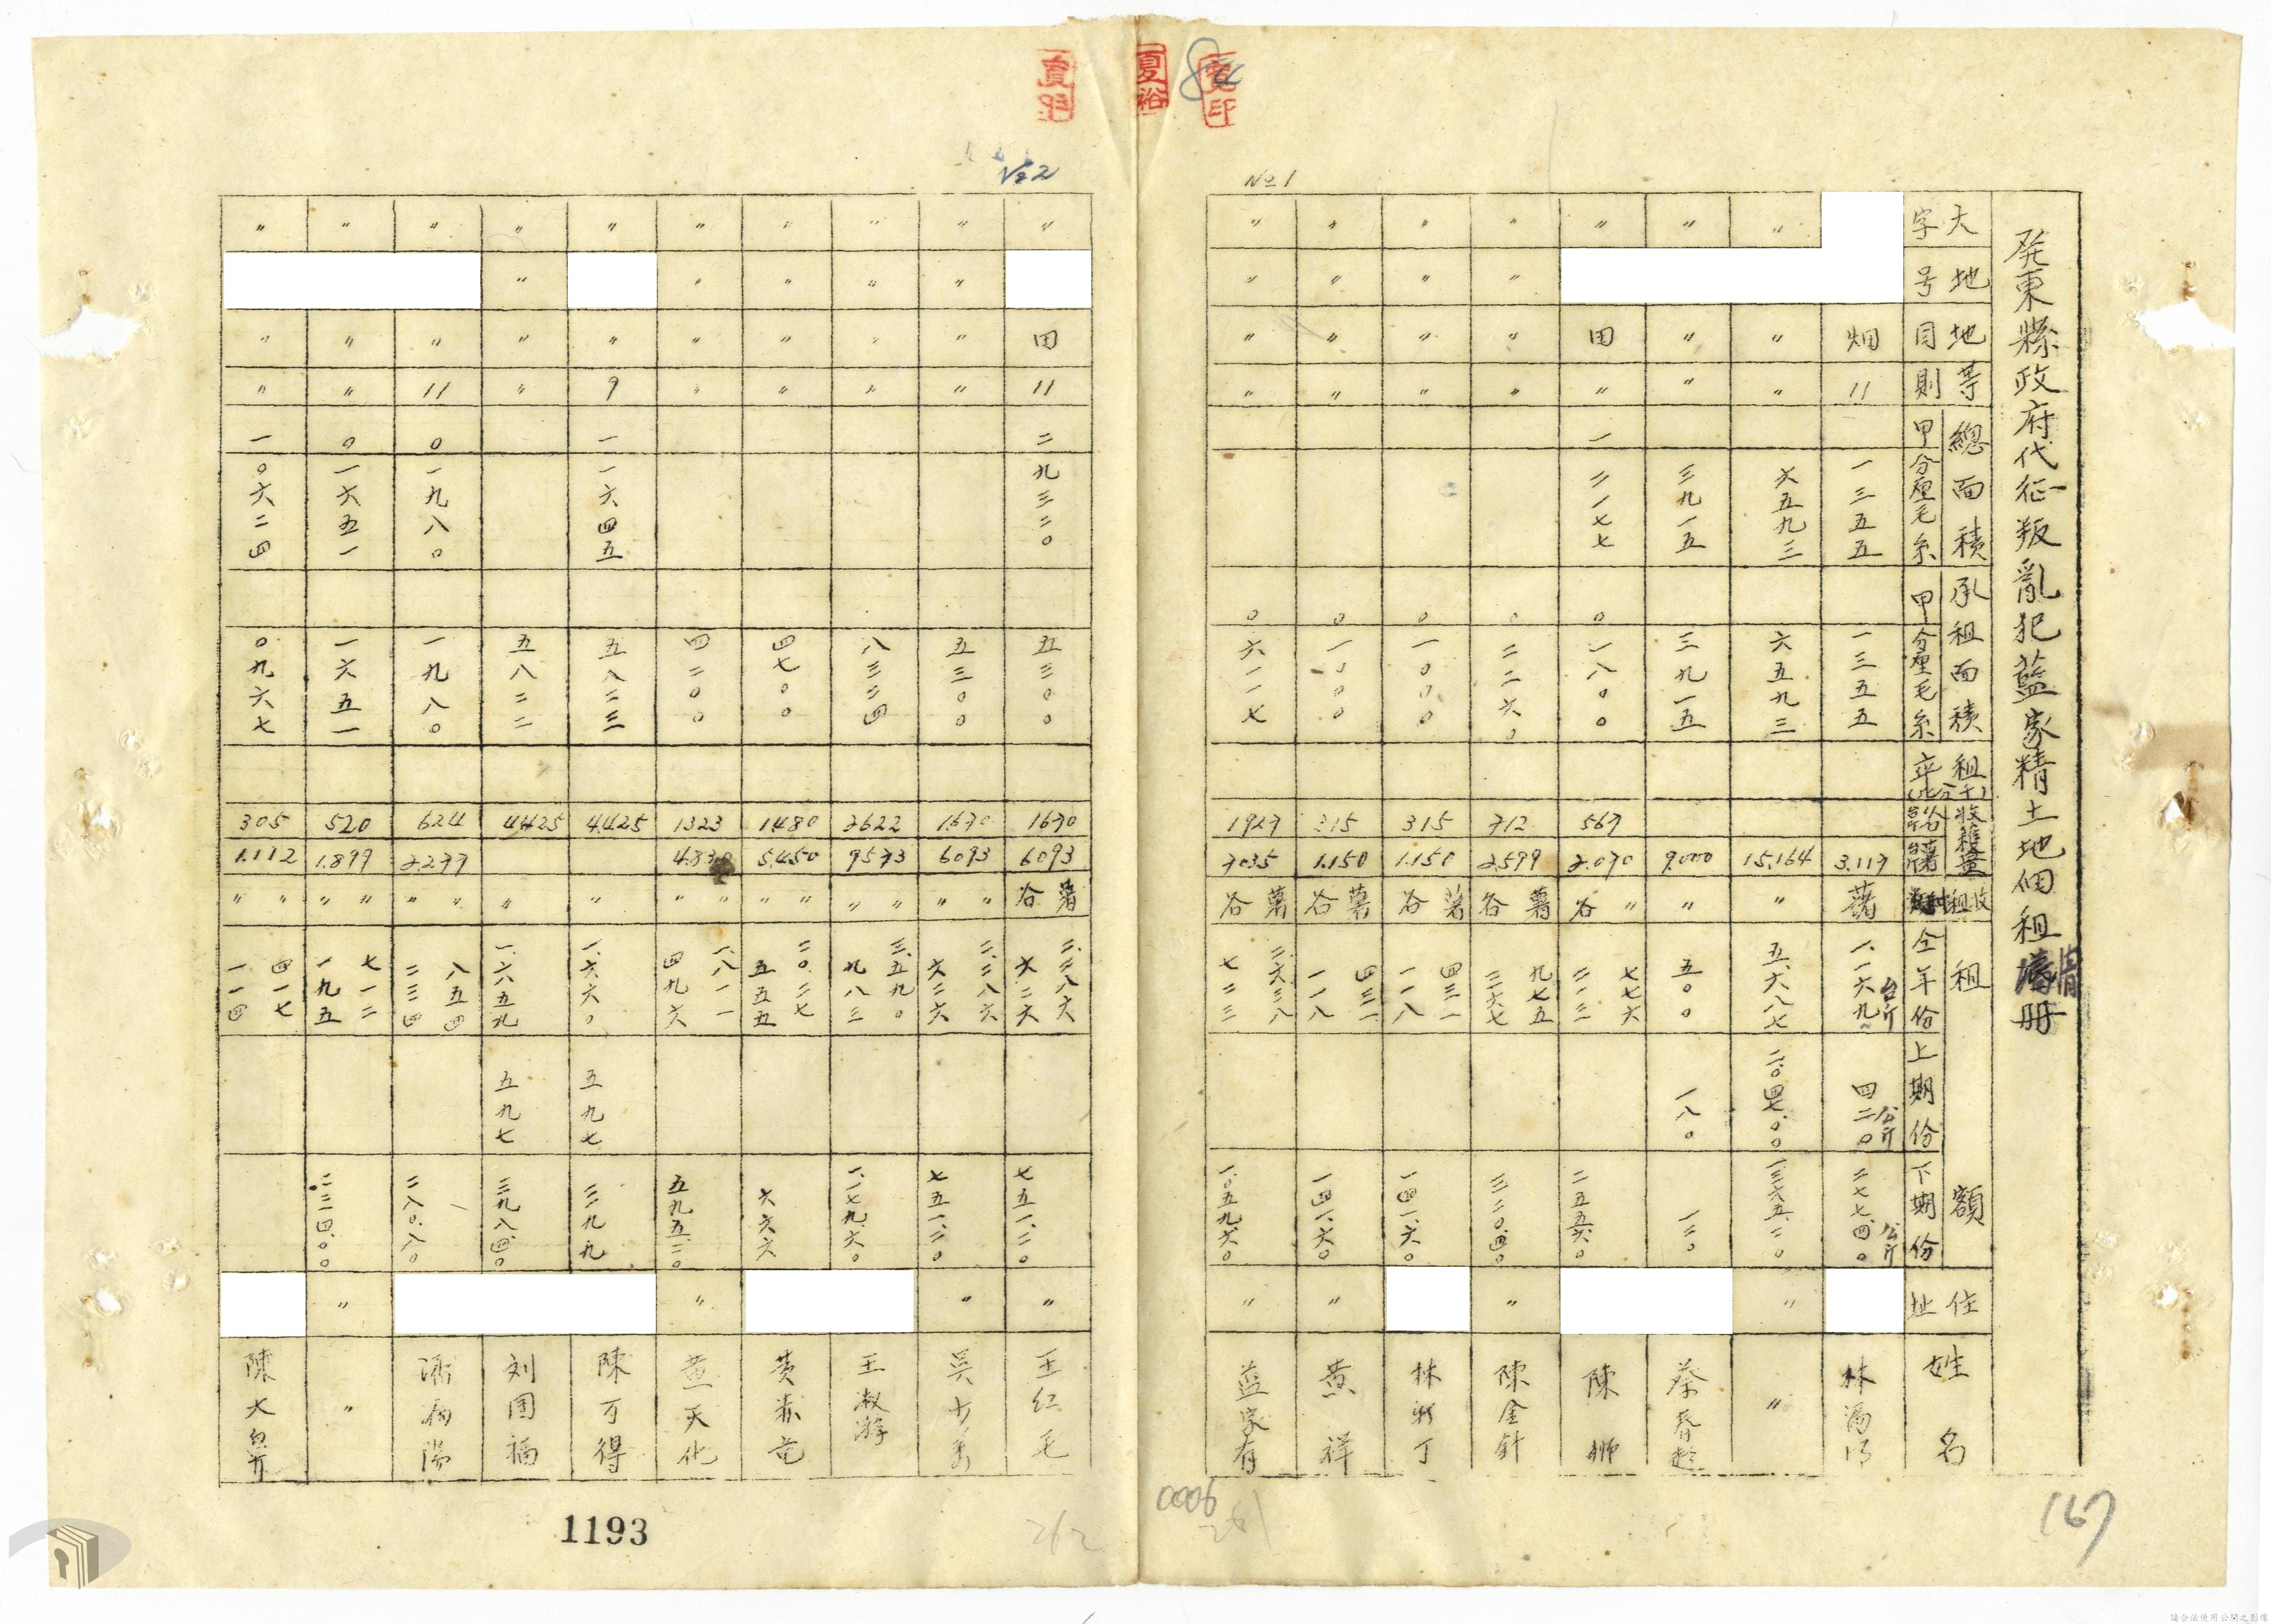 屏東縣政府代征叛亂犯藍家精土地佃租清冊
大字
地号
地目
等則
總面積
甲
分厘毛糸
承租面積
甲
分厘毛糸
租率
收穫量
收租
租額
全年份
上期份
下期份
住址
姓名
№1
畑 11 一三五五 一三五五 3.117 藷 一.一六九 台斤 四二〇 公斤 二七七.四〇 公斤
〃 〃 〃 六五九三 六五九三 15.164 〃 五.六八七 二.〇四七.〇〇 一三六五.二〇 〃 〃
〃 〃 〃 三九一五 三九一五 9.000 〃 五〇〇 一八〇 一二〇
〃 田 〃 一 二一七七 〇 一八〇〇 567 2.070 谷 〃 七七六 二一三 二五五.六〇 陳獅
〃 〃 〃 〃 〇 二二六〇 712 2.599 谷 薯 九七五 二六七 三二〇.四〇 〃 陳金針
〃 〃 〃 〃 〇 一〇〇〇 315 1.150 谷 薯 四三一 一一八 一四一.六〇 林新丁
〃 〃 〃 〃 〇 一〇〇〇 315 1.150 谷 薯 四三一 一一八 一四一.六〇 〃 黄祥
〃 〃 〃 〃 〇 六一一七 1927 7035 谷 薯 二.六三八 七二三 一.〇五九.六〇 〃 藍家有
№2
〃 田 11 二 九三二〇 五三〇〇 1670 6093 谷 薯 二.二八六 六二六 七五一.二〇 〃 王红毛
〃 〃 〃 〃 五三〇〇 1.670 6093 〃 〃 二.二八六 六二六 七五一.二〇 〃
〃 〃 〃 〃 八三二四 2622 9573 〃 〃 三.五九〇 九八三 一.一七九.六〇 王淑
〃 〃 〃 〃 四七〇〇 1480 5.450 〃 〃 二〇.二七 五五五 六六六
〃 〃 〃 〃 四二〇〇 1323 4.830 〃 〃 一.八一一 四九六 五九五.二〇 〃 黄天化
〃 〃 9 一 一六四五 五八二三 4.425 〃 一.六六〇 五九七 三九九 陳万得
〃 〃 〃 〃 五八二二 4425 〃 一.六五九 五九七 三九八.四〇 刘国福
〃 〃 11 〇 一九八〇 一九八〇 624 2.277 〃 〃 八五四 二三四 二八〇.八〇
〃 〃 〃 〇 一六五一 一六五一 520 1.899 〃 〃 七一二 一九五 二三四.〇〇 〃 〃
〃 〃 〃 一 〇六二四 〇九六七 305 1.112 〃 〃 四一七 一一四 陳大
1193
262
0006
261
167
請合法使用公開之影像